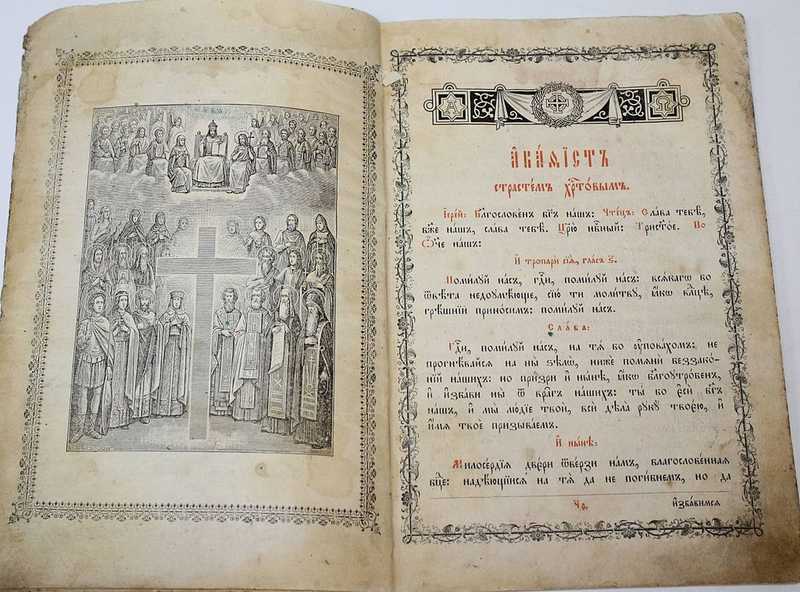 А҆ка́ѳїстъ
страстє́мъ хрⷭ҇тѡ́вымъ.
І҆ере́й: Бл҃гослове́нъ бг҃ъ на́шъ: Чте́цъ: Сла́ва тебѣ̀,
бж҃е на́шъ, сла́ва тебѣ̀. Цр҃ю̀ нбⷭ҇ный: Трист҃о́е. По
Ѻ҆́ч҃е на́шъ:
И҆ тропарѝ сїѧ̑, гла́съ ѕ҃.
Поми́лꙋй на́съ, гдⷭ҇и, поми́лꙋй на́съ: всѧ́кагѡ бо
ѿвѣ́та недоꙋмѣ́юще, сїю́ ти моли́твꙋ, ꙗ҆́кѡ влⷣцѣ,
грѣ́шнїи прино́симъ: поми́лꙋй на́съ.
Сла́ва:
Гдⷭ҇и, поми́лꙋй на́съ, на тѧ́ бо ᲂу҆пова́хомъ: не
прогнѣ́вайсѧ на ны̀ ѕѣлѡ̀, нижѐ помѧнѝ беззако́-
нїй на́шихъ: но при́зри и҆ ны́нѣ, ꙗ҆́кѡ бл҃гоꙋтро́бенъ,
и҆ и҆зба́ви ны̀ ѿ вра̑гъ на́шихъ: ты́ бо є҆сѝ бг҃ъ
на́шъ, и҆ мы̀ лю́дїе твоѝ, всѝ дѣла̀ рꙋкꙋ̀ твоє́ю, и҆
и҆́мѧ твоѐ призыва́емъ.
И҆ ны́нѣ:
Милосе́рдїѧ двє́ри ѿве́рзи на́мъ, благослове́ннаѧ
бцⷣе: надѣ́ющїисѧ на тѧ̀ да не поги́бнемъ, но да
и҆зба́вимсѧ